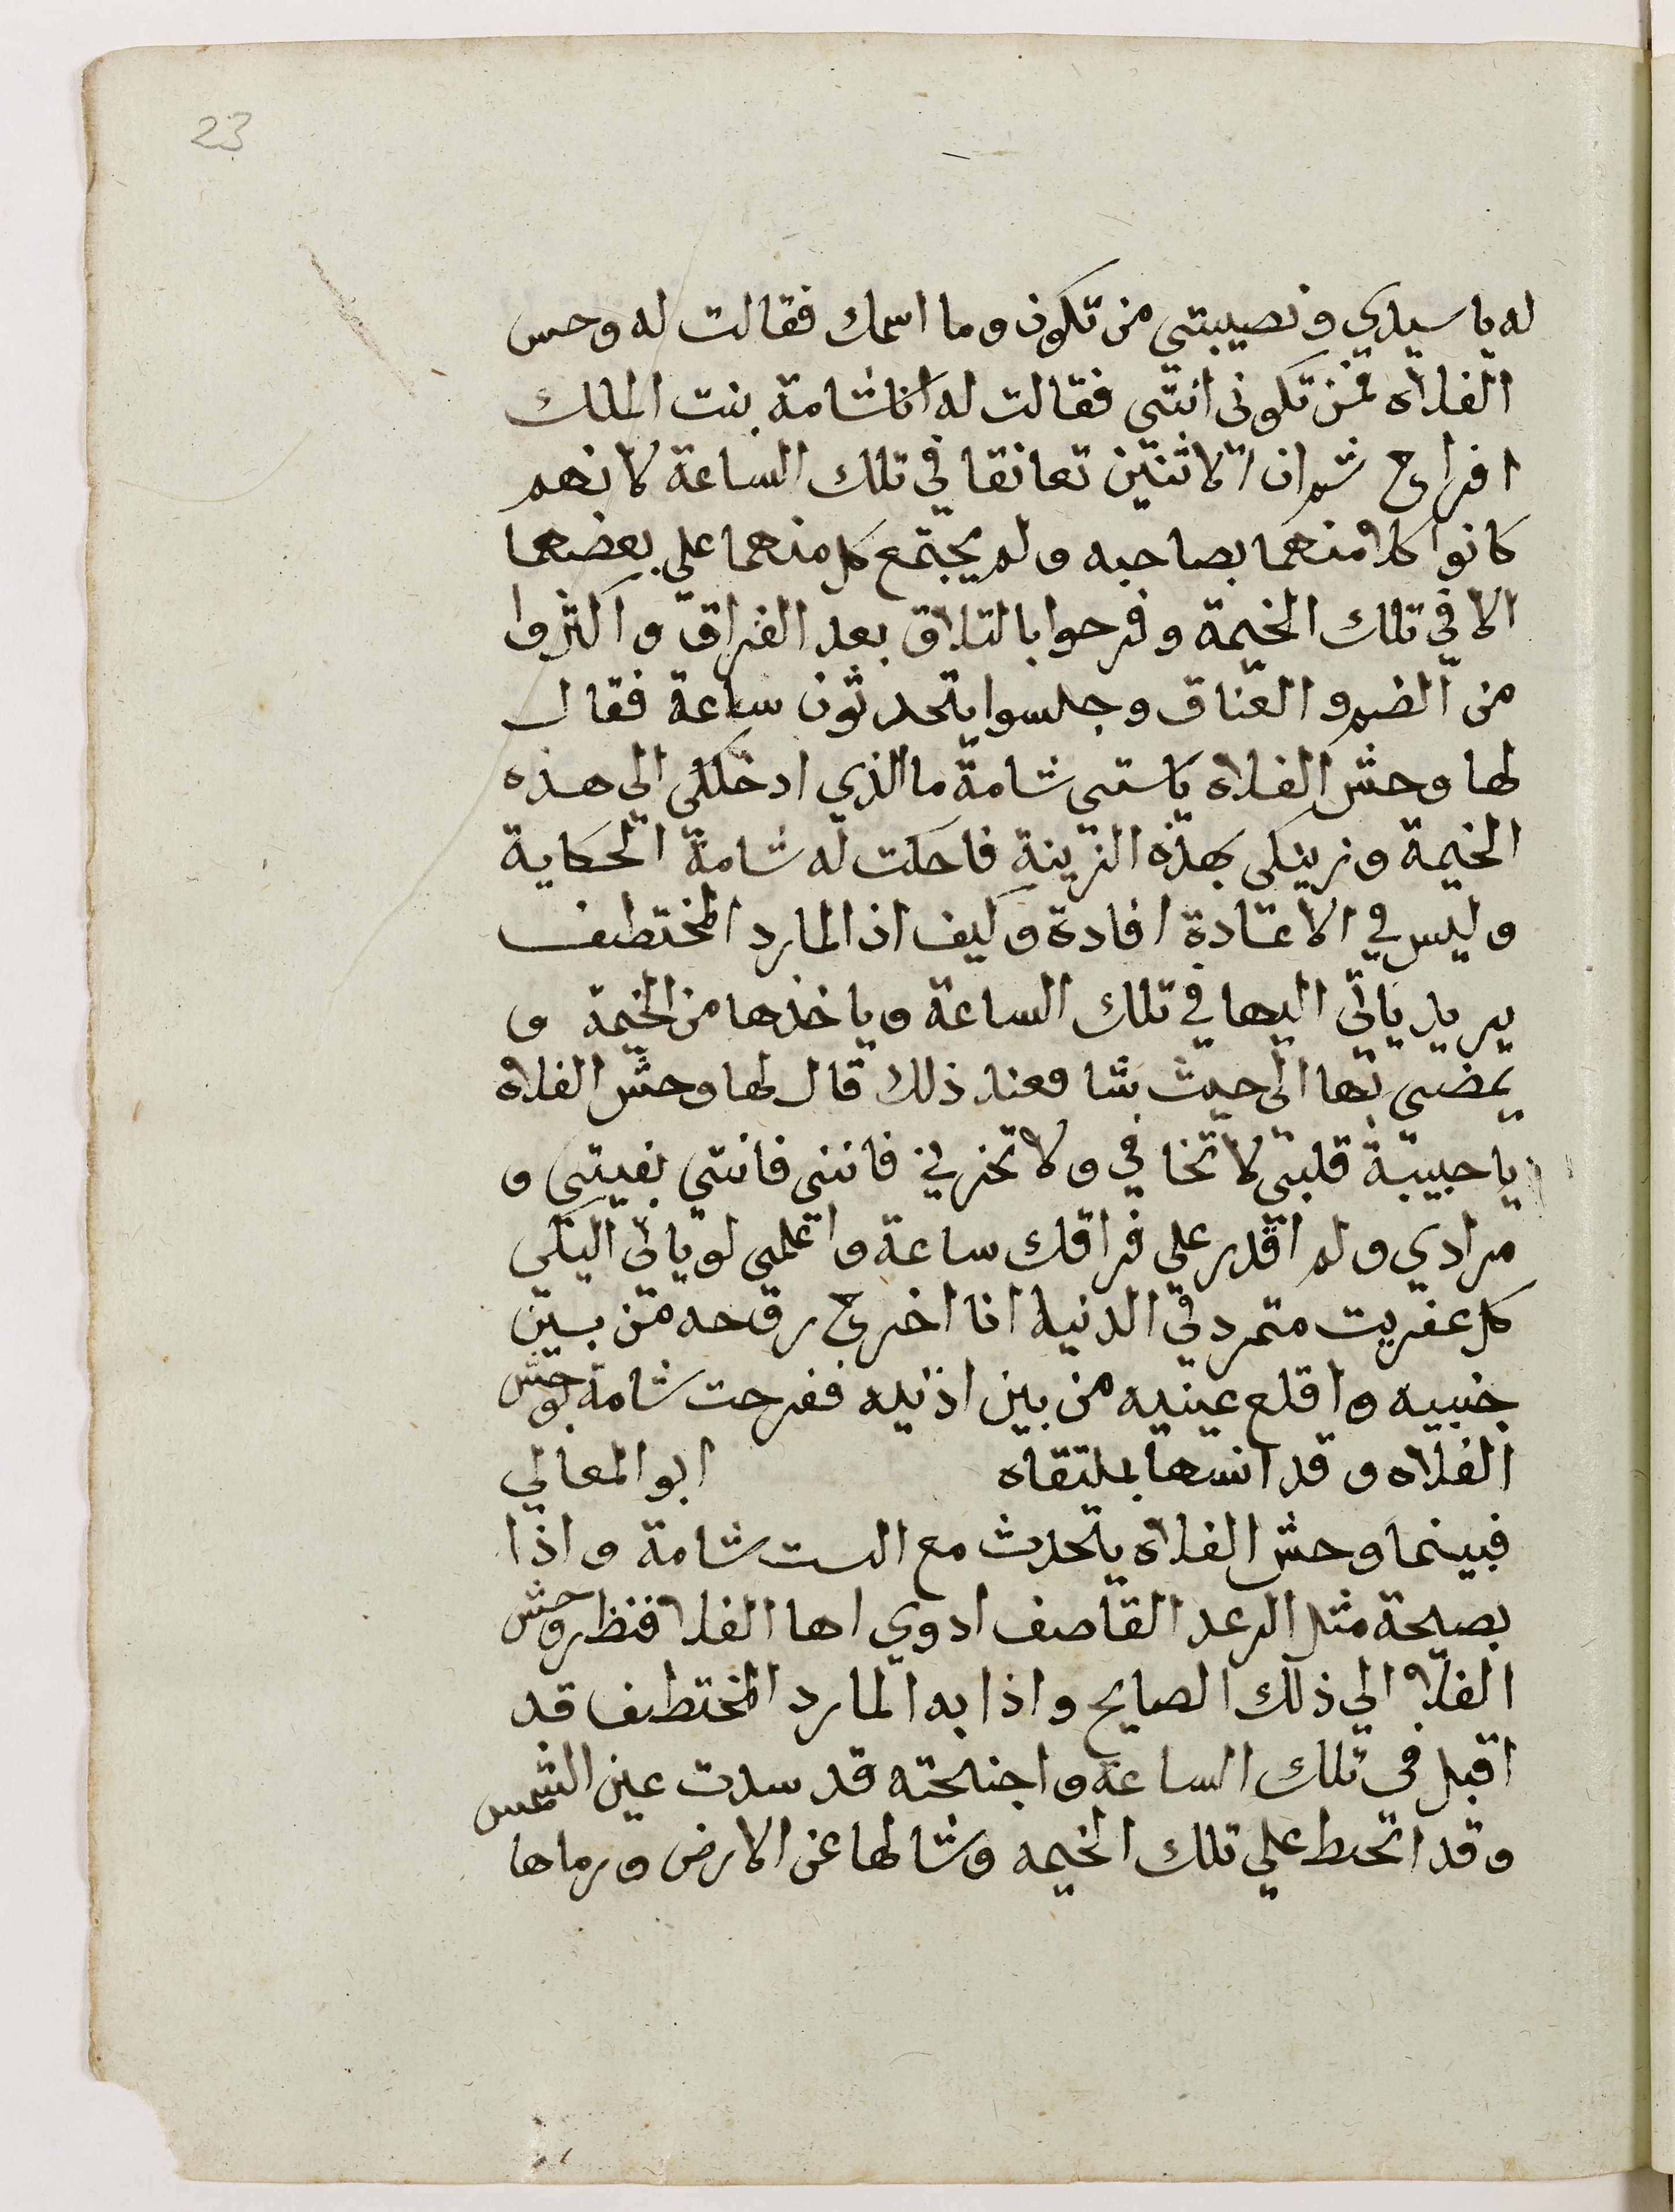 23
له يا سيدي ونصيبتي من تكون وما اسمك فقالت له وحس
الفلاه فمن تكوني انتي فقالت له انا شامة بنت الملك
افراح ثم ان الاثنين تعانقا في تلك الساعة لانهم
كانوا كلا منهما بصاحبه ولم يجتمع كل منهما علي بعضهما
الا في تلك الخيمة وفرحوا بالتلاق بعد الفراق واكثروا
من الضم والعناق وجلسوا يتحدثون ساعة فقال
لها وحش الفلاه ياستي شامة ما الذي ادخلكي الي هذه
الخيمة وزينكي بهذه الزينة فاحكت له شامة الحكاية
وليس في الاعادة افادة وكيف اذ المارد المختطف
يريد ياتي اليها في تلك الساعة وياخذها من الخيمة و
يمضي بها الي حيث يشا فعند ذلك قال لها وحش الفلاه
يا حبيبة قلبي لا تخافي ولا تحزني فانني فانتي بغيتي و
مرادي ولم اقدر علي فراقك ساعة واعلمي لو ياتي اليكي
كل عفريت متمرد في الدنيا انا اخرج روحه من بين
جنبيه واقلع عينيه من بين اذنيه ففرحت شامة بوحش
الفلاه وقد انسها بملتقاه ابو المعالي
فبينما وحش الفلاه يتحدث مع الست شامة واذا
بصيحة مثل الرعد القاصف ادوي لها الفلا فنظر وحش
الفلا الي ذلك الصايح واذا به المارد المختطف قد
اقبل في تلك الساعة واجنحته قد سدت عين الشمس
وقد انحط علي تلك الخيمه وشالها عن الارض ورماها